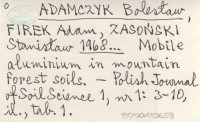 0 ADAMCZYK Bolesław,
FIREK Adam, ZASOŃSKI
Stanisław 1968... Mobile
aluminium in mountain
forest soils. — Polish Journal
of Soil Science 1, nr 1: 3-10,
il., tab. 1.